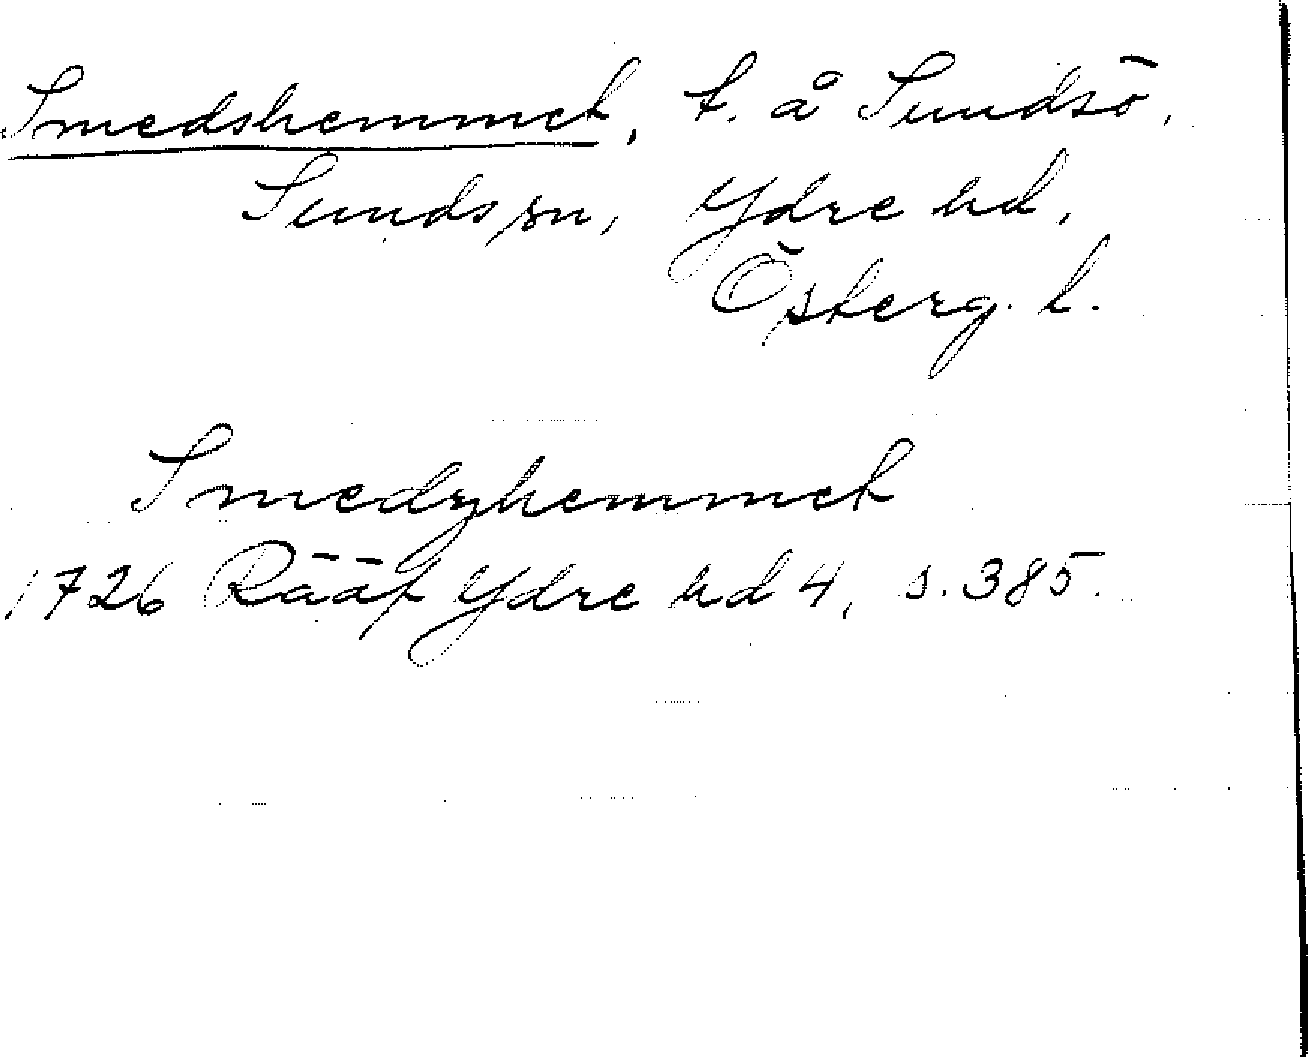 Smedshemmet, t. å Sundsö,
Sunds sn, Ydre hd,
Österg. l.
Smedzhemmet
1726 Rääf Ydre hd 4, s. 385.